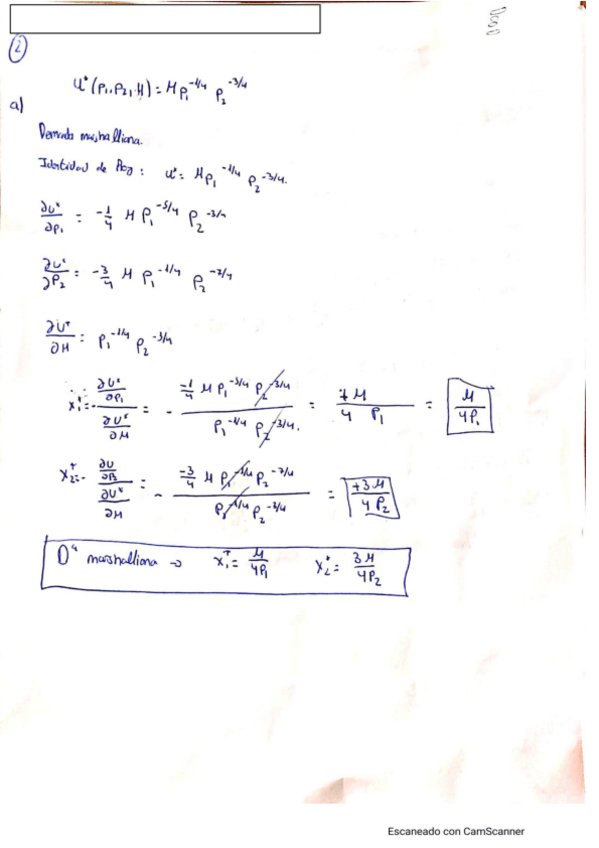 ②
U*(P₁,P₂,M) = M P₁^-1/4 P₂^-3/4
a)
Demanda marshalliana.
Identidad de Roy: U* = M P₁^-1/4 P₂^-3/4.
∂U*/∂P₁ = -1/4 M P₁^-5/4 P₂^-3/4
∂U*/∂P₂ = -3/4 M P₁^-1/4 P₂^-7/4
∂U*/∂M = P₁^-1/4 P₂^-3/4
X₁* = - (∂U*/∂P₁)/(∂U*/∂M) = - (-1/4 M P₁^-5/4 P₂^-3/4)/(P₁^-1/4 P₂^-3/4) = +M/4 P₁ = M/4P₁
X₂* = - (∂U/∂P₂)/(∂U*/∂M) = - (-3/4 M P₁^-1/4 P₂^-7/4)/(P₁^-1/4 P₂^-3/4) = +3M/4 P₂
Dª marshalliana → X₁* = M/4P₁ X₂* = 3M/4P₂
Escaneado con CamScanner